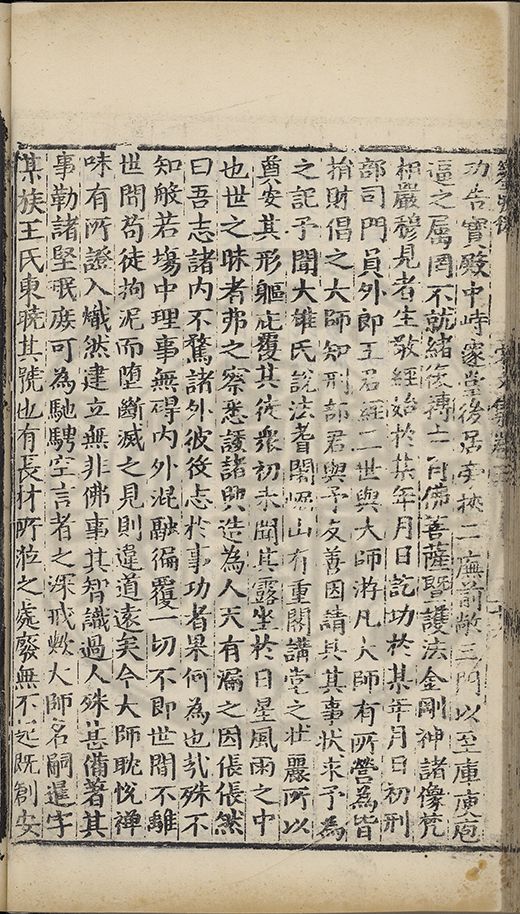 功告寳殿中峙邃堂後居旁挾二廡前敞三門以至庫庾庖
湢之屬罔不就緒復摶土肖佛菩薩曁護法金剛神諸像梵
相嚴穆見者生敬經始於某年月日訖功於某年月日初刑
部司門員外郎王君經二世與大師游凡大師有所營為皆
捐財倡之大師知刑部君與予友善因請具其事状求予為
之記予聞大雄氏說法耆闍崛山有重閣講堂之状麗所以
奠安其形軀庇覆其徒衆初未聞其露坐於日星風雨之中
也世之昧者弗之察悉諉諸興造為人天有漏之因倀倀然
曰吾志諸内不騖諸外彼役志於事功者果何為也㢤殊不
知般若塲中理事無碍内外混融徧覆一切不即世間不離
世間苟徒拘泥而堕斷滅之見則違道遠矣今大師耽悅禪
味有所證入熾然建立無非佛事其智識過人殊甚備著其
事勒諸堅珉庶可為馳騁空言者之深戒歟大師名嗣暹字
某族王氏東曉其號也有長材所涖之處廢無不起既創安